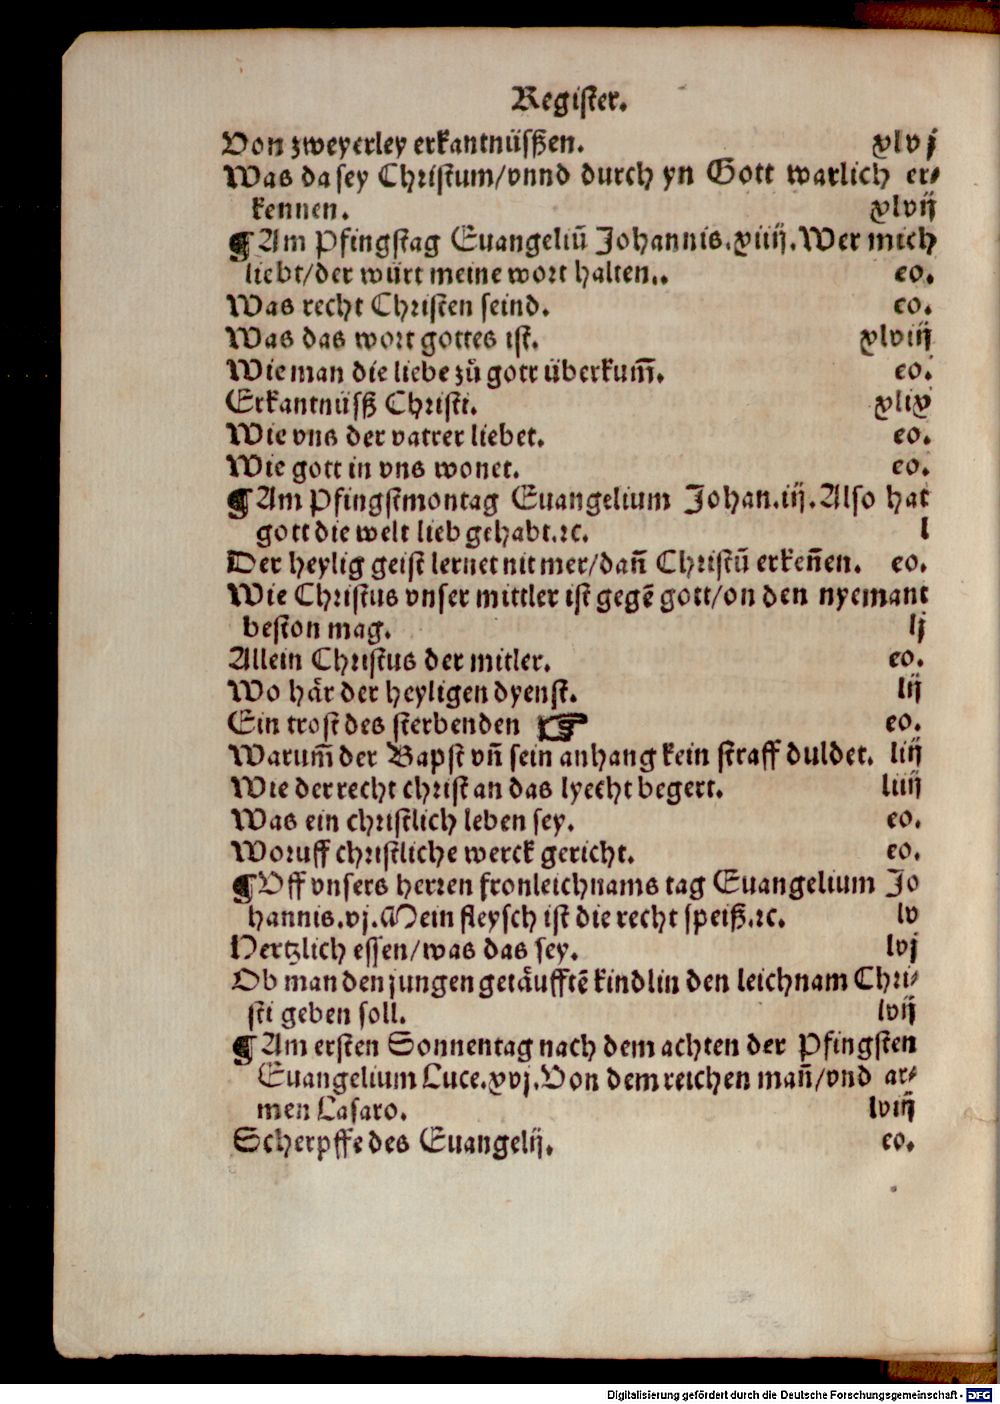 Register.
Von zweyerley erkantnüsßen. xlvj
Was da sey Christum/vnnd durch yn Gott warlich er⸗
kennen. xlvij
¶ Am Pfingstag Euangeliū Johannis.xiiij.Wer mich
liebt/der würt meine wort halten.. eo.
Was recht Christen seind. eo.
Was das wort gottes ist. xlviij
Wie man die liebe zů gott überkum̄. eo.
Erkantnüsß Christi. xlix
Wie vns der vatter liebet. eo.
Wie gott in vns wonet. eo.
¶ Am Pfingstmontag Euangelium Johan.iij.Also hat
gott die welt lieb gehabt.⁊c. l
Der heylig geist lernet nit mer/dan̄ Christū erken̄en. eo.
Wie Christus vnser mittler ist gegē gott/on den nyemant
beston mag. lj
Allein Christus der mitler. eo.
Wo här der heyligen dyenst. lij
Ein trost des sterbenden ☞ eo.
Warum̄ der Bapst vn̄ sein anhang kein straff duldet. liij
Wie der recht christ an das lyecht begert. liiij
Was ein christlich leben sey. eo.
Woruff christliche werck gericht. eo.
¶ Vff vnsers herren fronleichnams tag Euangelium Jo
hannis.vj.Mein fleysch ist die recht speiß.⁊c. lv
Hertzlich essen/was das sey. lvj
Ob man den jungen getäufftē kindlin den leichnam Chri⸗
sti geben soll. lvij
¶ Am ersten Sonnentag nach dem achten der Pfingsten
Euangelium Luce.xvj.Von dem reichen man̄/vnd ar⸗
men Lasaro. lviij
Scherpffe des Euangelij. eo.
Digitalisierung gefördert durch die Deutsche Forschungsgemeinschaft - DFG